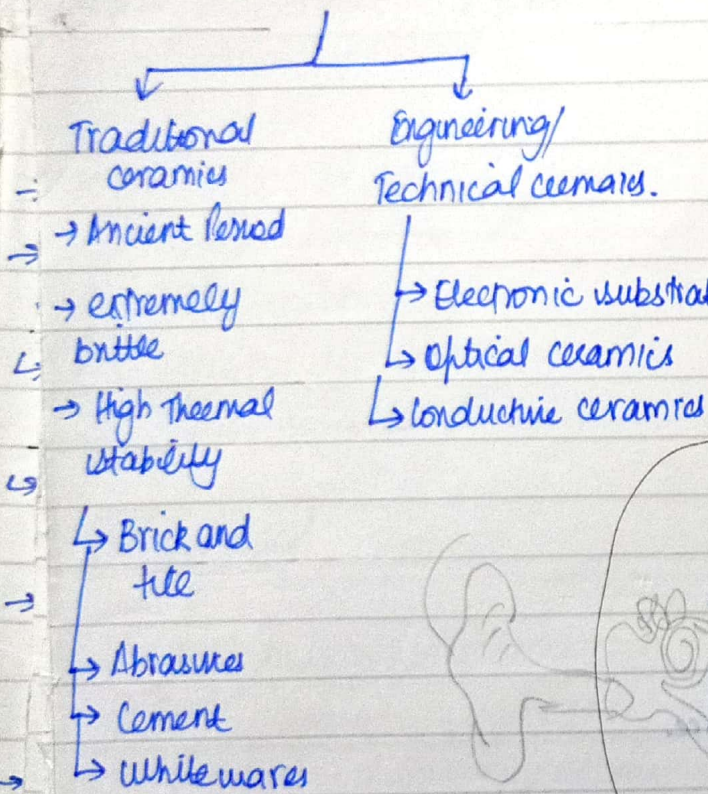 Traditional
ceramics
→ Ancient Period
→ extremely
brittle
→ High Thermal
stability
↳ Brick and
tile
→ Abrasives
→ Cement
↳ Whitewares
Engineering/
Technical ceemaics.
→ Elecronic substrat
↳ Optical ceramics
↳ Conductive ceramics